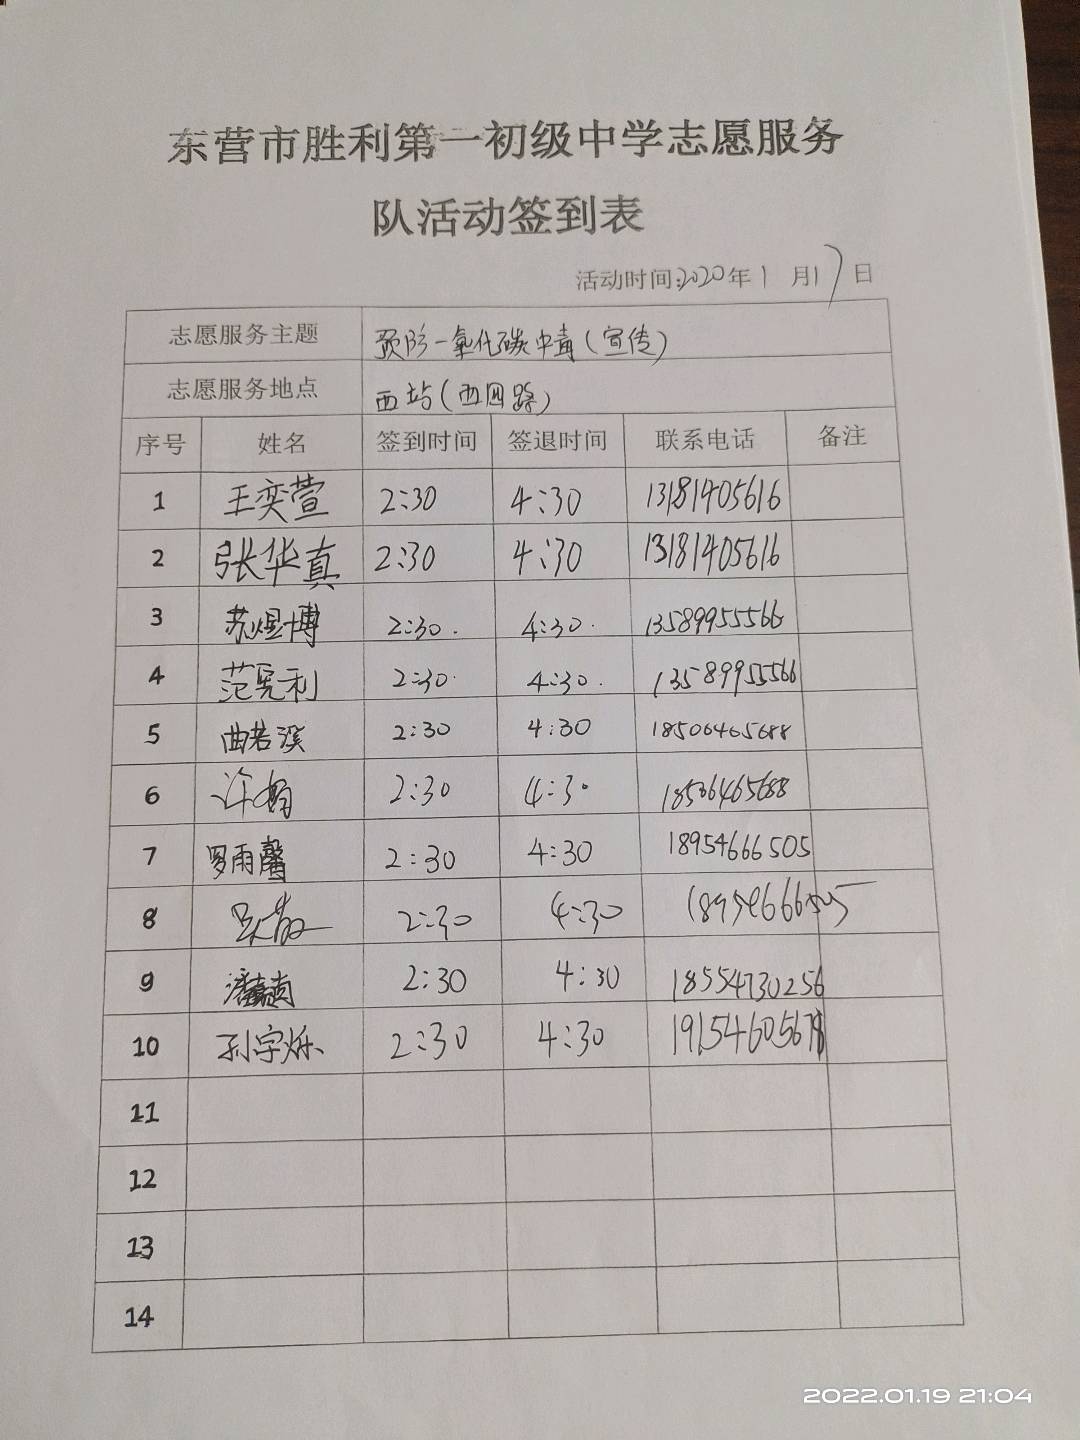 东营市胜利第一初级中学志愿服务
队活动签到表
活动时间:2020年1月17日
志愿服务主题 预防一氧化碳中毒(宣传)
志愿服务地点 西站(西四路)
序号 姓名 签到时间 签退时间 联系电话 备注
1 王奕萱 2:30 4:30 13181405616
2 张华真 2:30 4:30 13181405616
3 苏煜博 2:30. 4:30. 13589955566
4 范宪利 2:30. 4:30. 13589955566
5 曲若溪 2:30 4:30 18506465688
6 2:30 4:30 18506465688
7 罗雨馨 2:30 4:30 18954666505
8 2:30 4:30 18954666505
9 2:30 4:30 18554730256
10 孙宇烁 2:30 4:30
11
12
13
14
2022.01.19 21:04